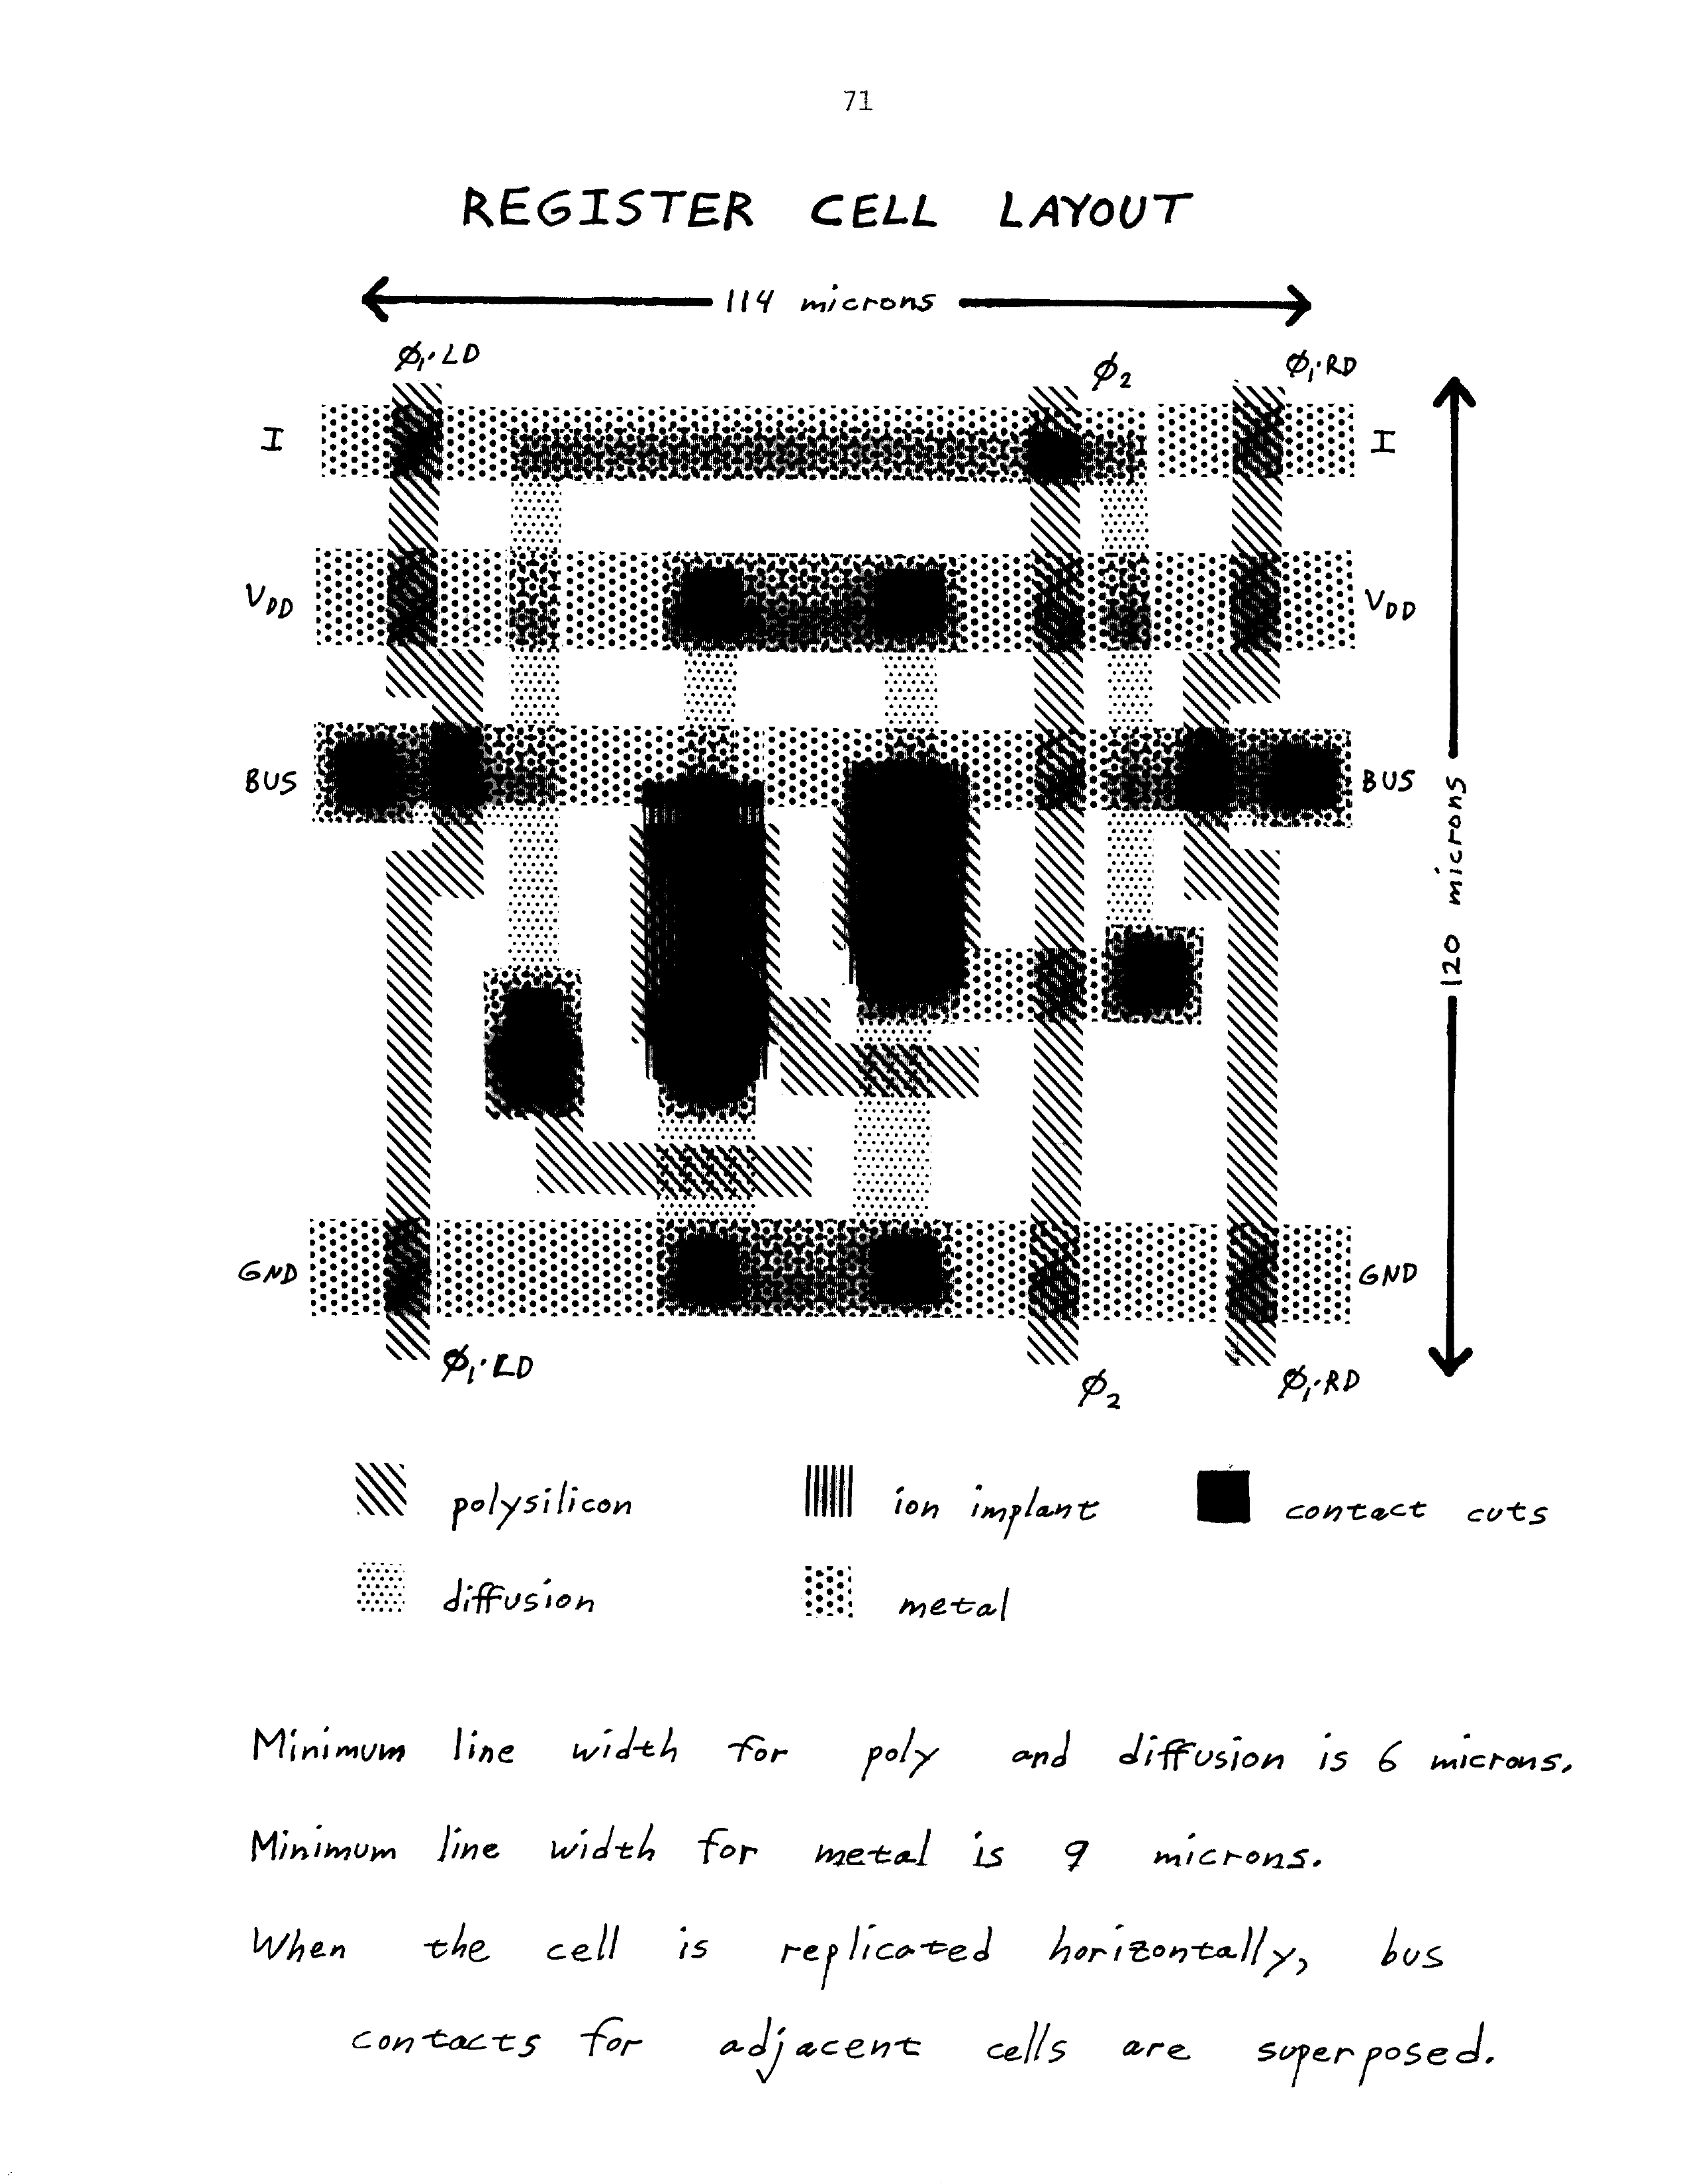 71
REGISTER CELL LAYOUT
114 microns
ϕ₁·LD ϕ₂ ϕ₁·RD
I I
VDD VDD
BUS BUS
120 microns
GND GND
ϕ₁·LD ϕ₂ ϕ₁·RD
polysilicon ion implant contact cuts
diffusion metal
Minimum line width for poly and diffusion is 6 microns.
Minimum line width for metal is 9 microns.
When the cell is replicated horizontally, bus
contacts for adjacent cells are superposed.